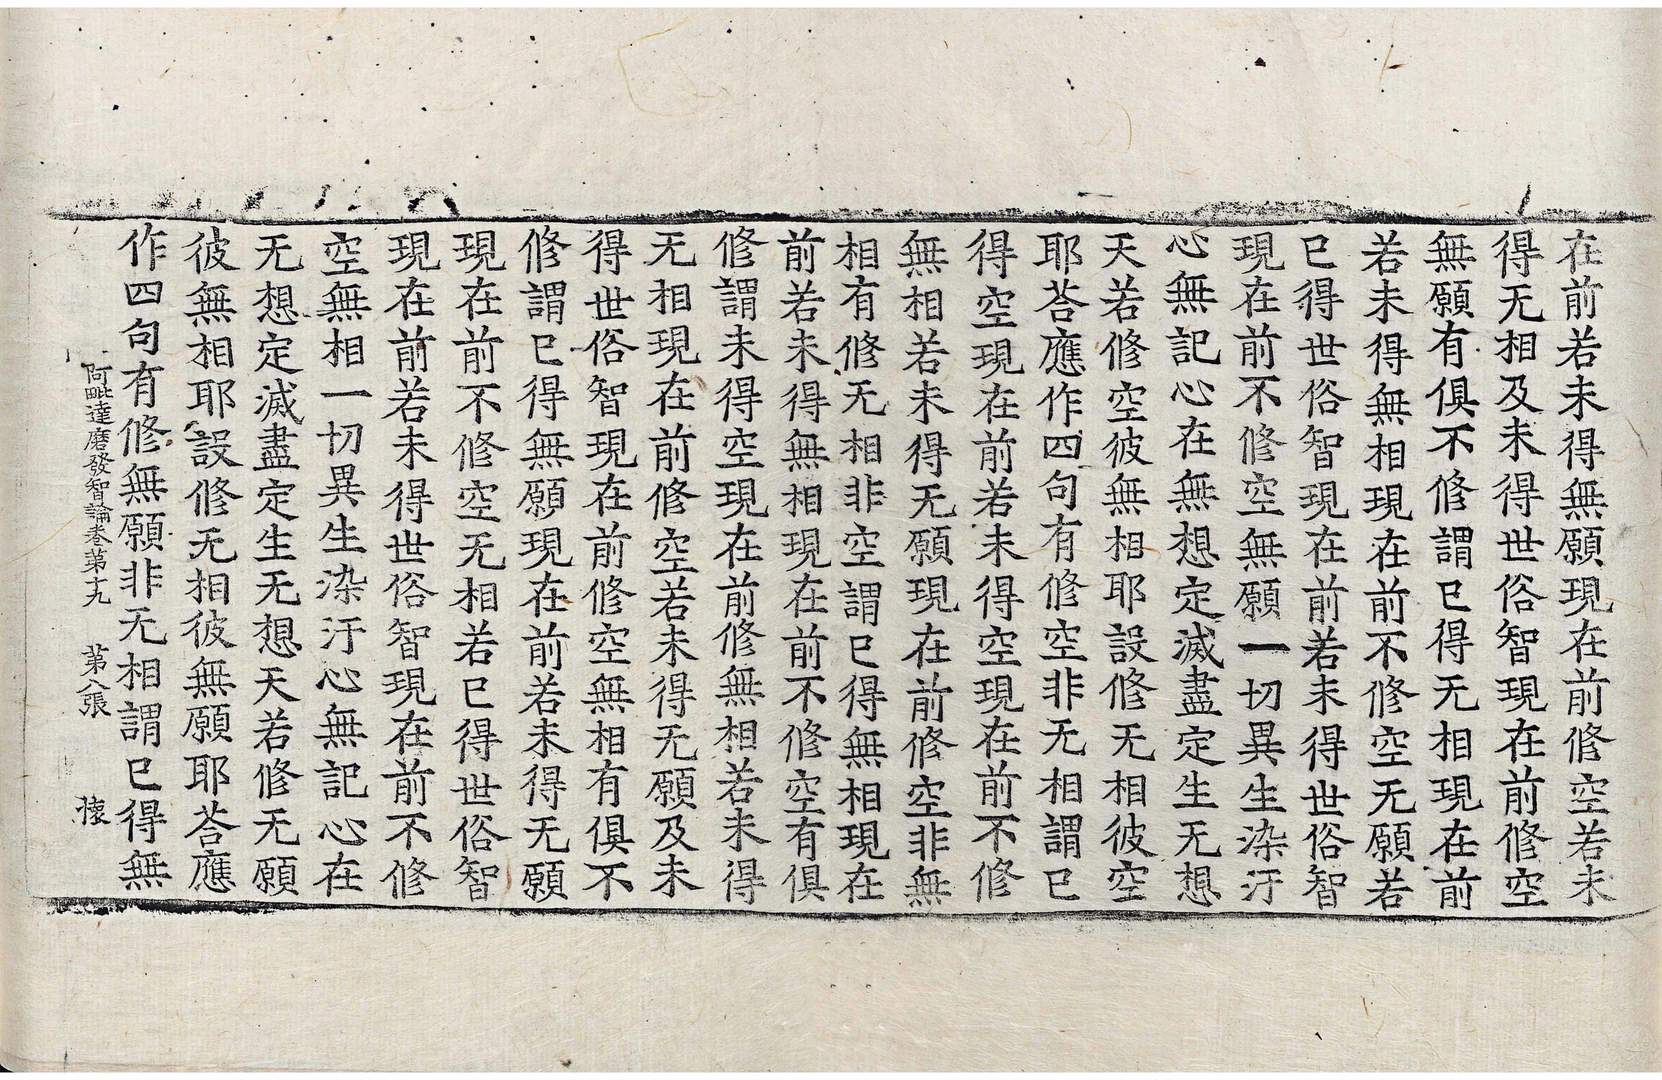 在前若未得無願現在前修空若未
得无相及未得世俗智現在前修空
無願有俱不修謂已得无相現在前
若未得無相現在前不修空无願若
已得世俗智現在前若未得世俗智
現在前不修空無願一切異生染汙
心無記心在無想定滅盡定生无想
天若修空彼無相耶設修无相彼空
耶荅應作四句有修空非无相謂已
得空現在前若未得空現在前不修
無相若未得无願現在前修空非無
相有修无相非空謂已得無相現在
前若未得無相現在前不修空有俱
修謂未得空現在前修無相若未得
无相現在前修空若未得无願及未
得世俗智現在前修空無相有俱不
修謂已得無願現在前若未得无願
現在前不修空无相若已得世俗智
現在前若未得世俗智現在前不修
空無相一切異生染汙心無記心在
无想定滅盡定生无想天若修无願
彼無相耶設修无相彼無願耶荅應
作四句有修無願非无相謂已得無
阿毗達磨發智論卷第十九 第八張 㰒